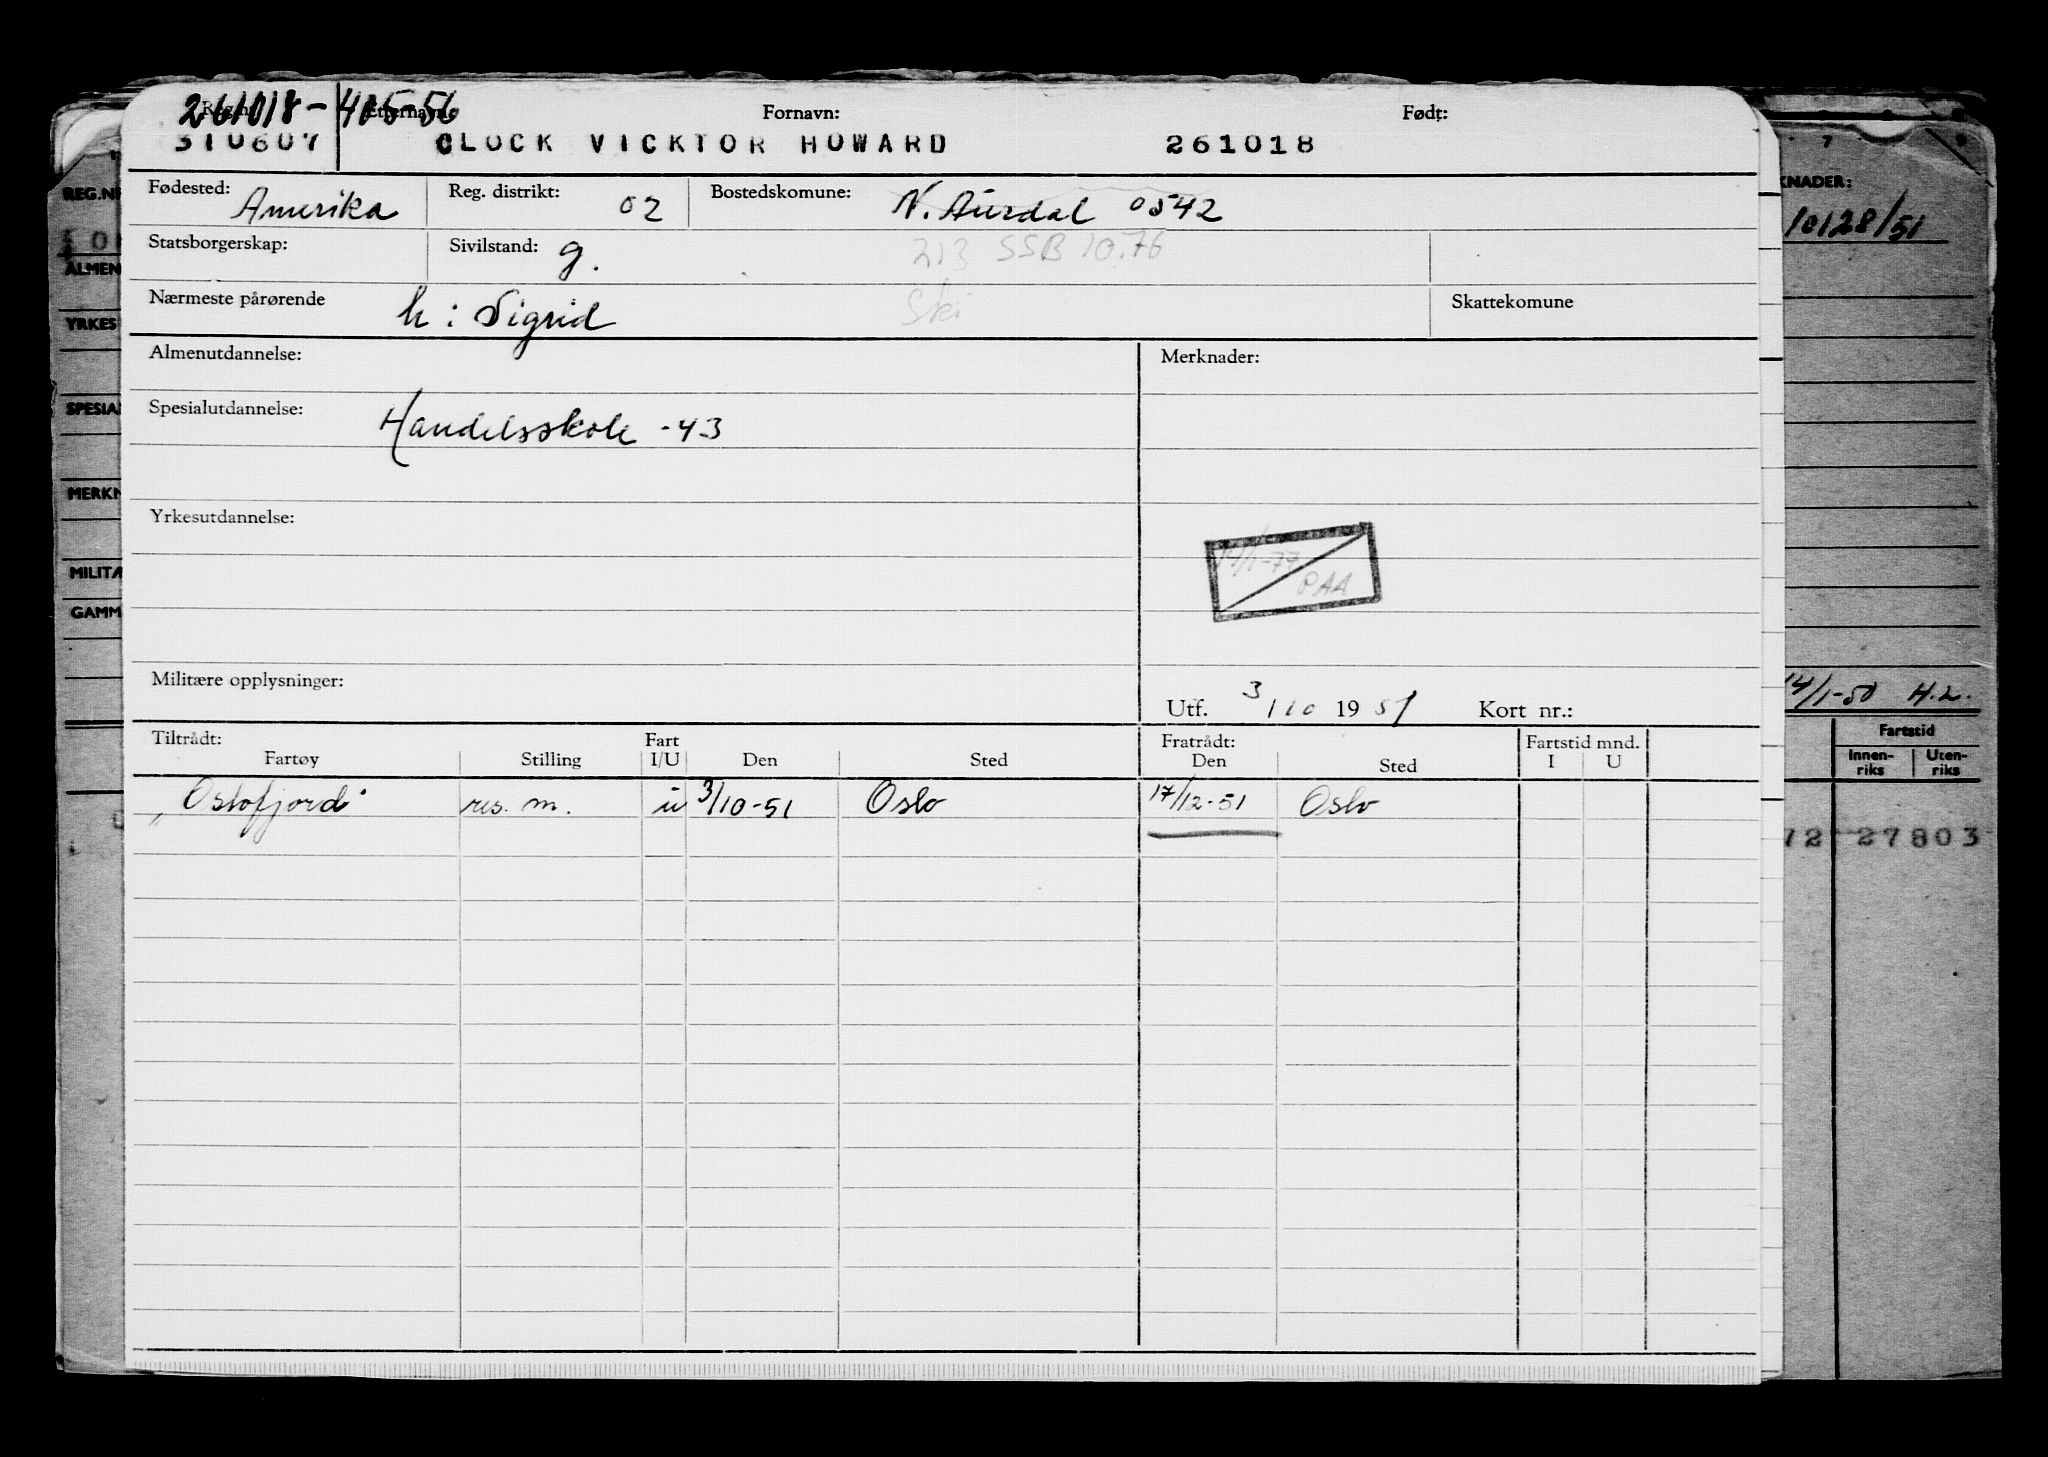 261018-41556
Reg.nr. Etternavn: Fornavn: Født:
310607 CLOCK VICKTOR HOWARD 261018
Fødested: Amerika Reg. distrikt: 02 Bostedskomune: N. Aurdal 0542
Statsborgerskap: Sivilstand: g. 213 SSB 10.76
Nærmeste pårørende h: Sigrid Ski Skattekomune
Almenutdannelse: Merknader:
Spesialutdannelse: Handelsskole -43
Yrkesutdannelse:
14/1-77
PAA
Militære opplysninger:
Utf. 3/10 1951 Kort nr.:
Tiltrådt: Fart Fratrådt: Fartstid mnd.
Fartøy Stilling I/U Den Sted Den Sted I U
"Oslofjord" res. m. u 3/10-51 Oslo 17/12-51 Oslo
REG.NR
ALMEN
YRKES
SPESIA
MERKN
MILITÆ
GAMM
7
KNADER:
10128/51
14/1-50 H.2.
Fartstid
Innen-riks Uten-riks
72 27803